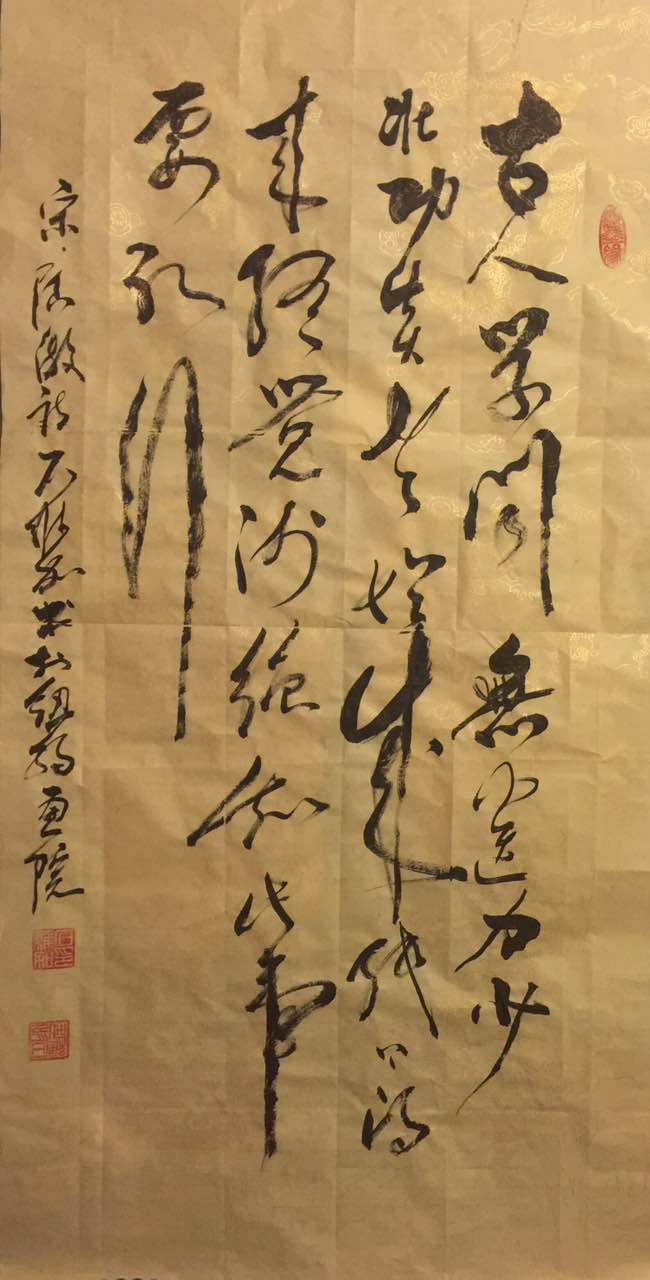 古人学问無遗力少
壮功夫老始成纸上得
来终覺浅绝知此事
要躬行
宋陆游诗 书于 画院